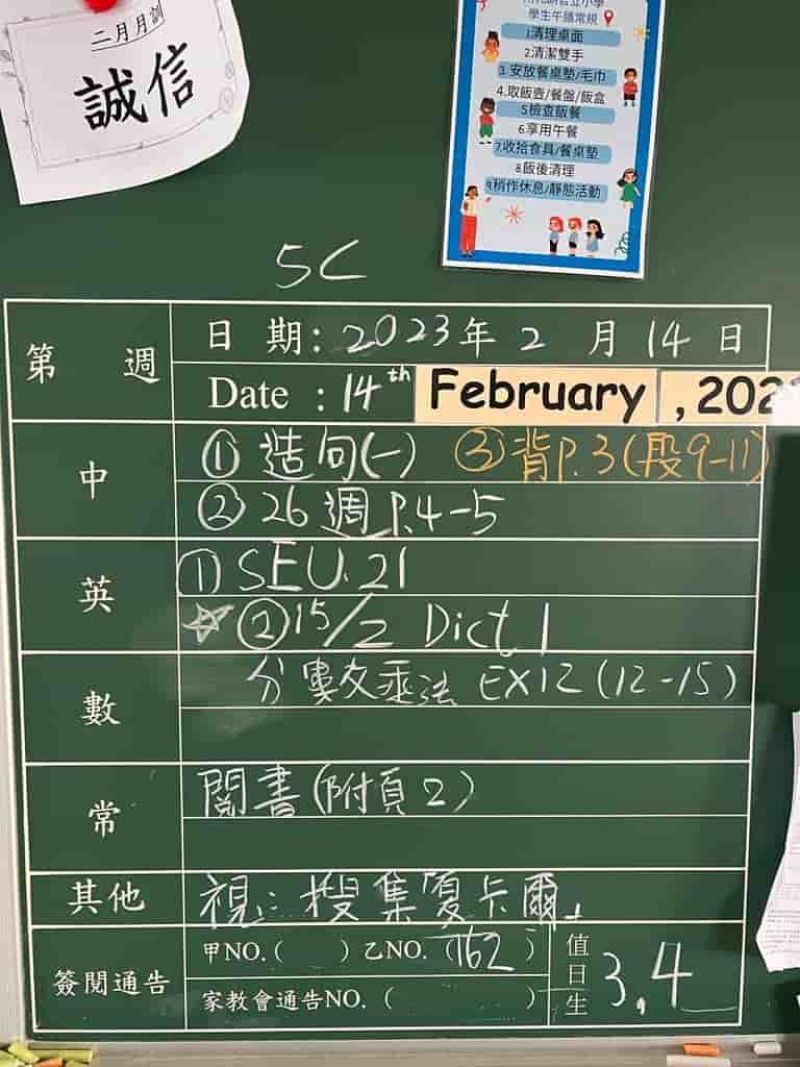 二月月訓
誠信
學生午膳常規
1.清理桌面
2.清潔雙手
3.安放餐桌墊/毛巾
4.取飯壺/餐盤/飯盒
5.檢查飯餐
6.享用午餐
7.收拾食具/餐桌墊
8.飯後清理
9.稍作休息/靜態活動
5C
第 週
日 期: 2023年 2 月 14 日
Date : 14th February , 202
中
① 造句(一) ③ 背P.3(段9-11)
② 26週 P.4-5
英
① SEU.21
☆ ② 15/2 Dict 1
數
分數乘法 EX12 (12-15)
常
閱書(附頁2)
其他
視: 搜集
簽閱通告
甲NO.( ) 乙NO.(162)
家教會通告NO.( )
值日生 3,4